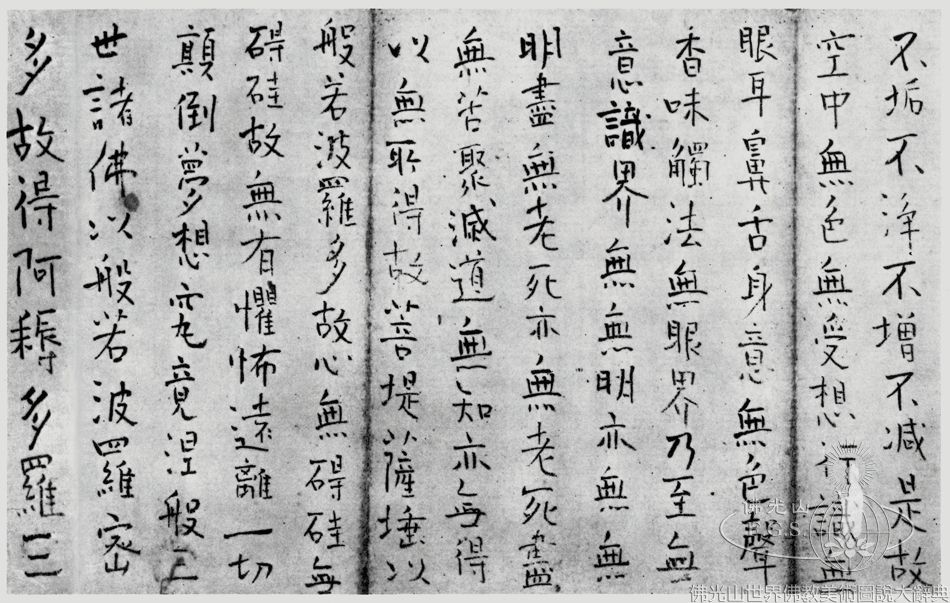 不垢不淨不增不減是故
空中無色無受想行識無
眼耳鼻舌身意無色聲
香味觸法無眼界乃至無
意識界無無明亦無無
明盡無老死亦無老死盡
無苦聚滅道無知亦無得
以無所得故菩堤薩埵以
般若波羅多故心無碍硅無
碍硅故無有懼怖遠離一切
顛倒夢想究竟涅般三
世諸佛以般若波羅密
多故得阿耨多羅三
佛光山
佛光山世界佛教美術圖說大辭典